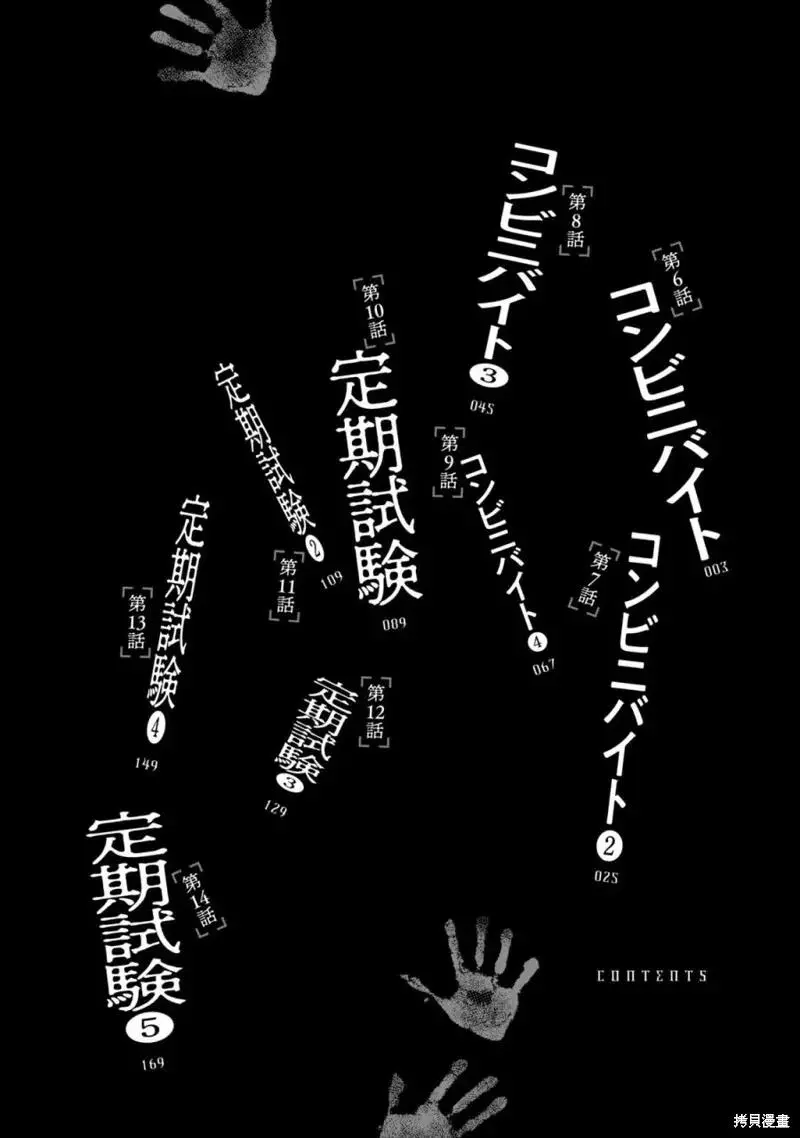 第6話
コンビニバイト
003
第7話
コンビニバイト2
025
第8話
コンビニバイト3
045
第9話
コンビニバイト4
067
第10話
定期試験
089
第11話
定期試験2
109
第12話
定期試験3
129
第13話
定期試験4
149
第14話
定期試験5
169
CONTENTS
拷貝漫畫